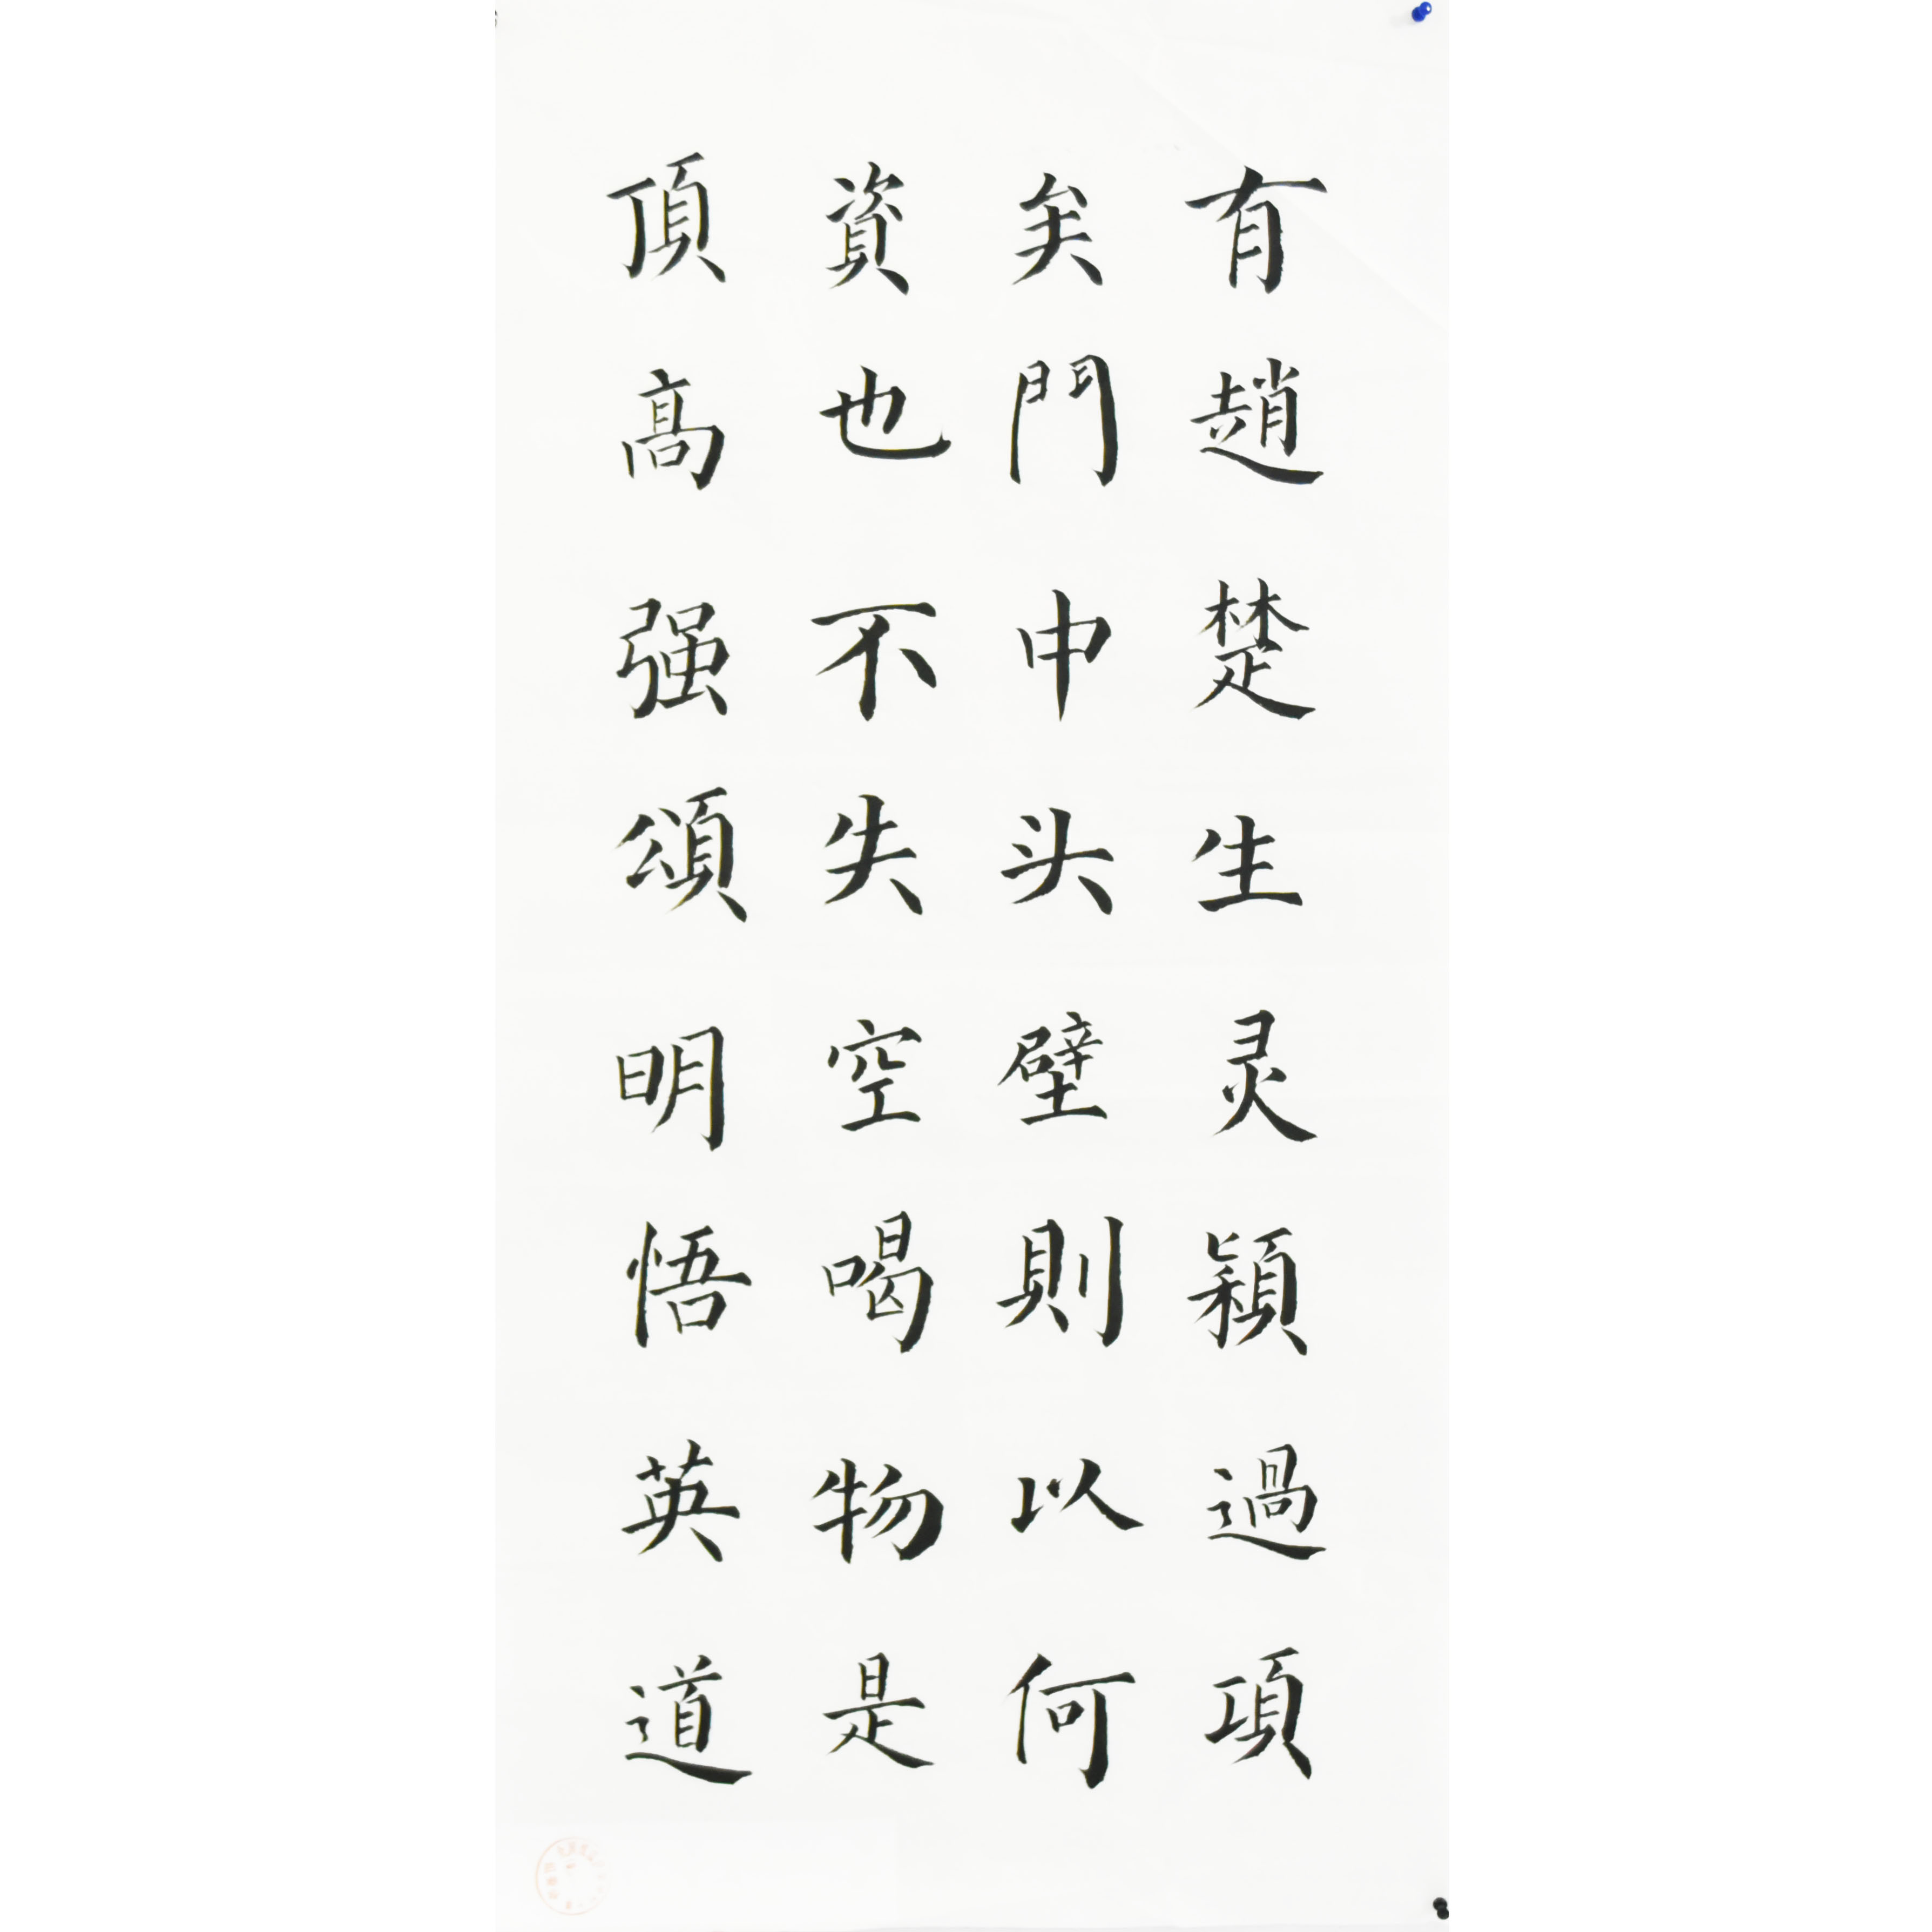 有趙楚生灵穎過項
矣門中头壁則以何
資也不失空喝物是
頂高强頌明悟英道